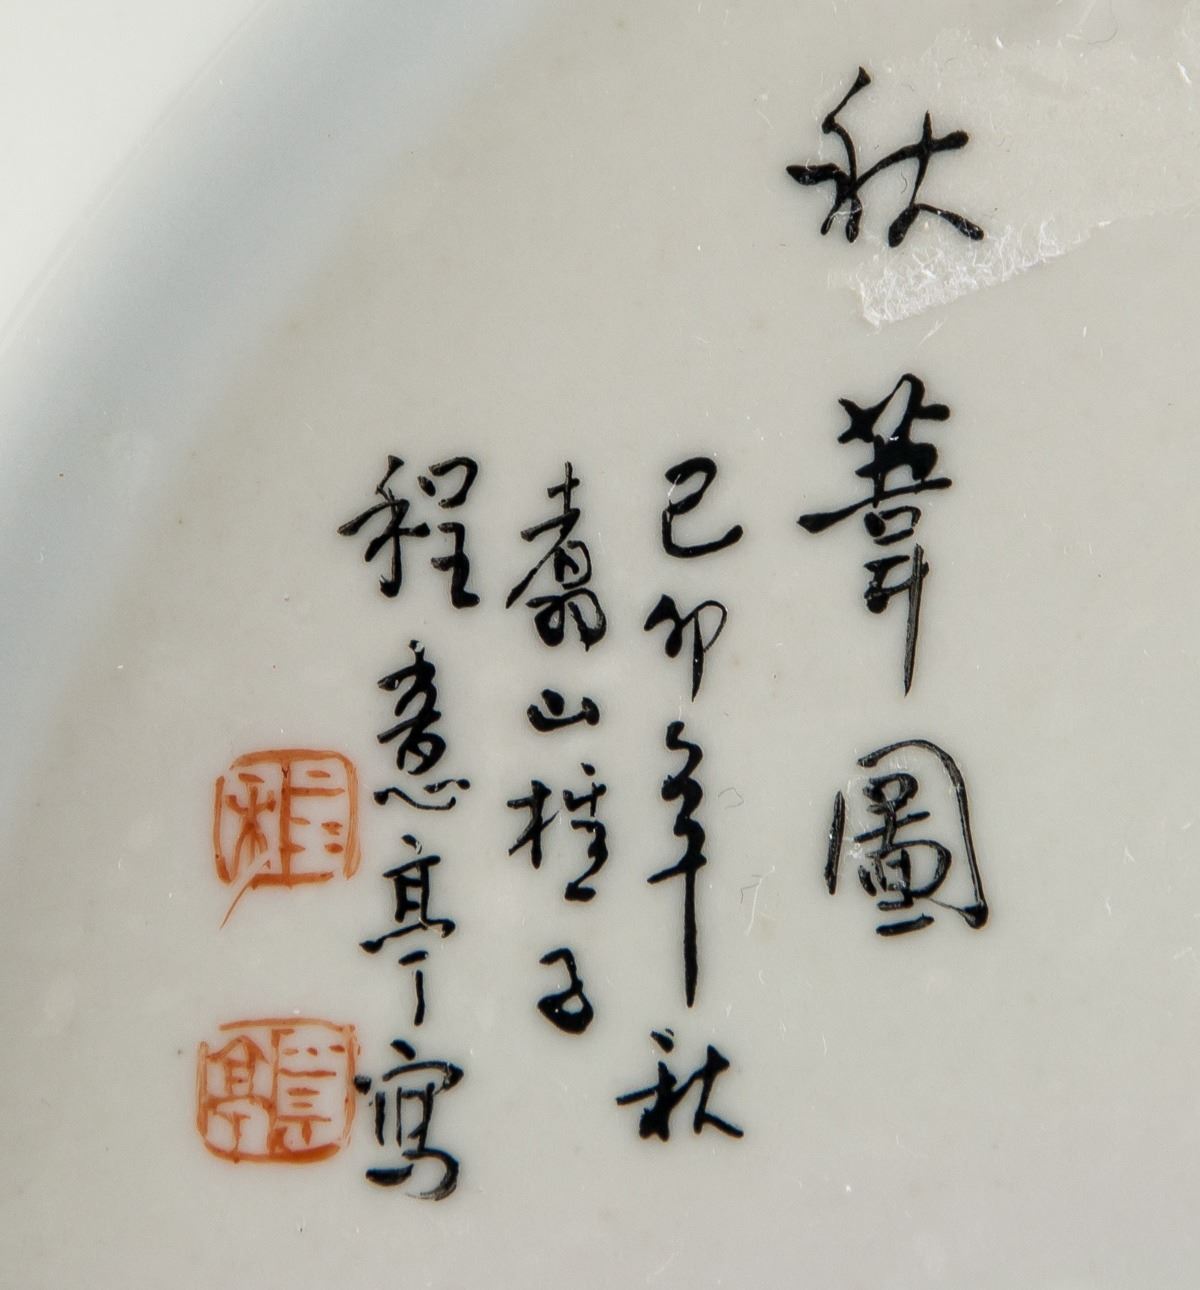 秋葦圖
己卯年秋
翥山樵子
程意亭寫
程
意亭